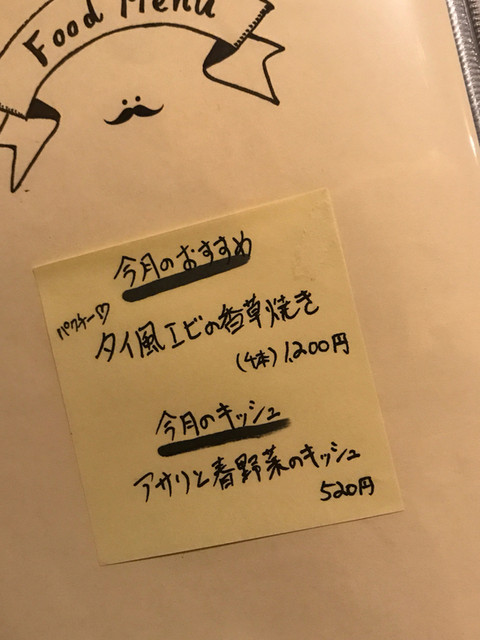 Food Menu
今月のおすすめ
パクチー♡
タイ風エビの香草焼き
(4本) 1,200円
今月のキッシュ
アサリと春野菜のキッシュ
520円